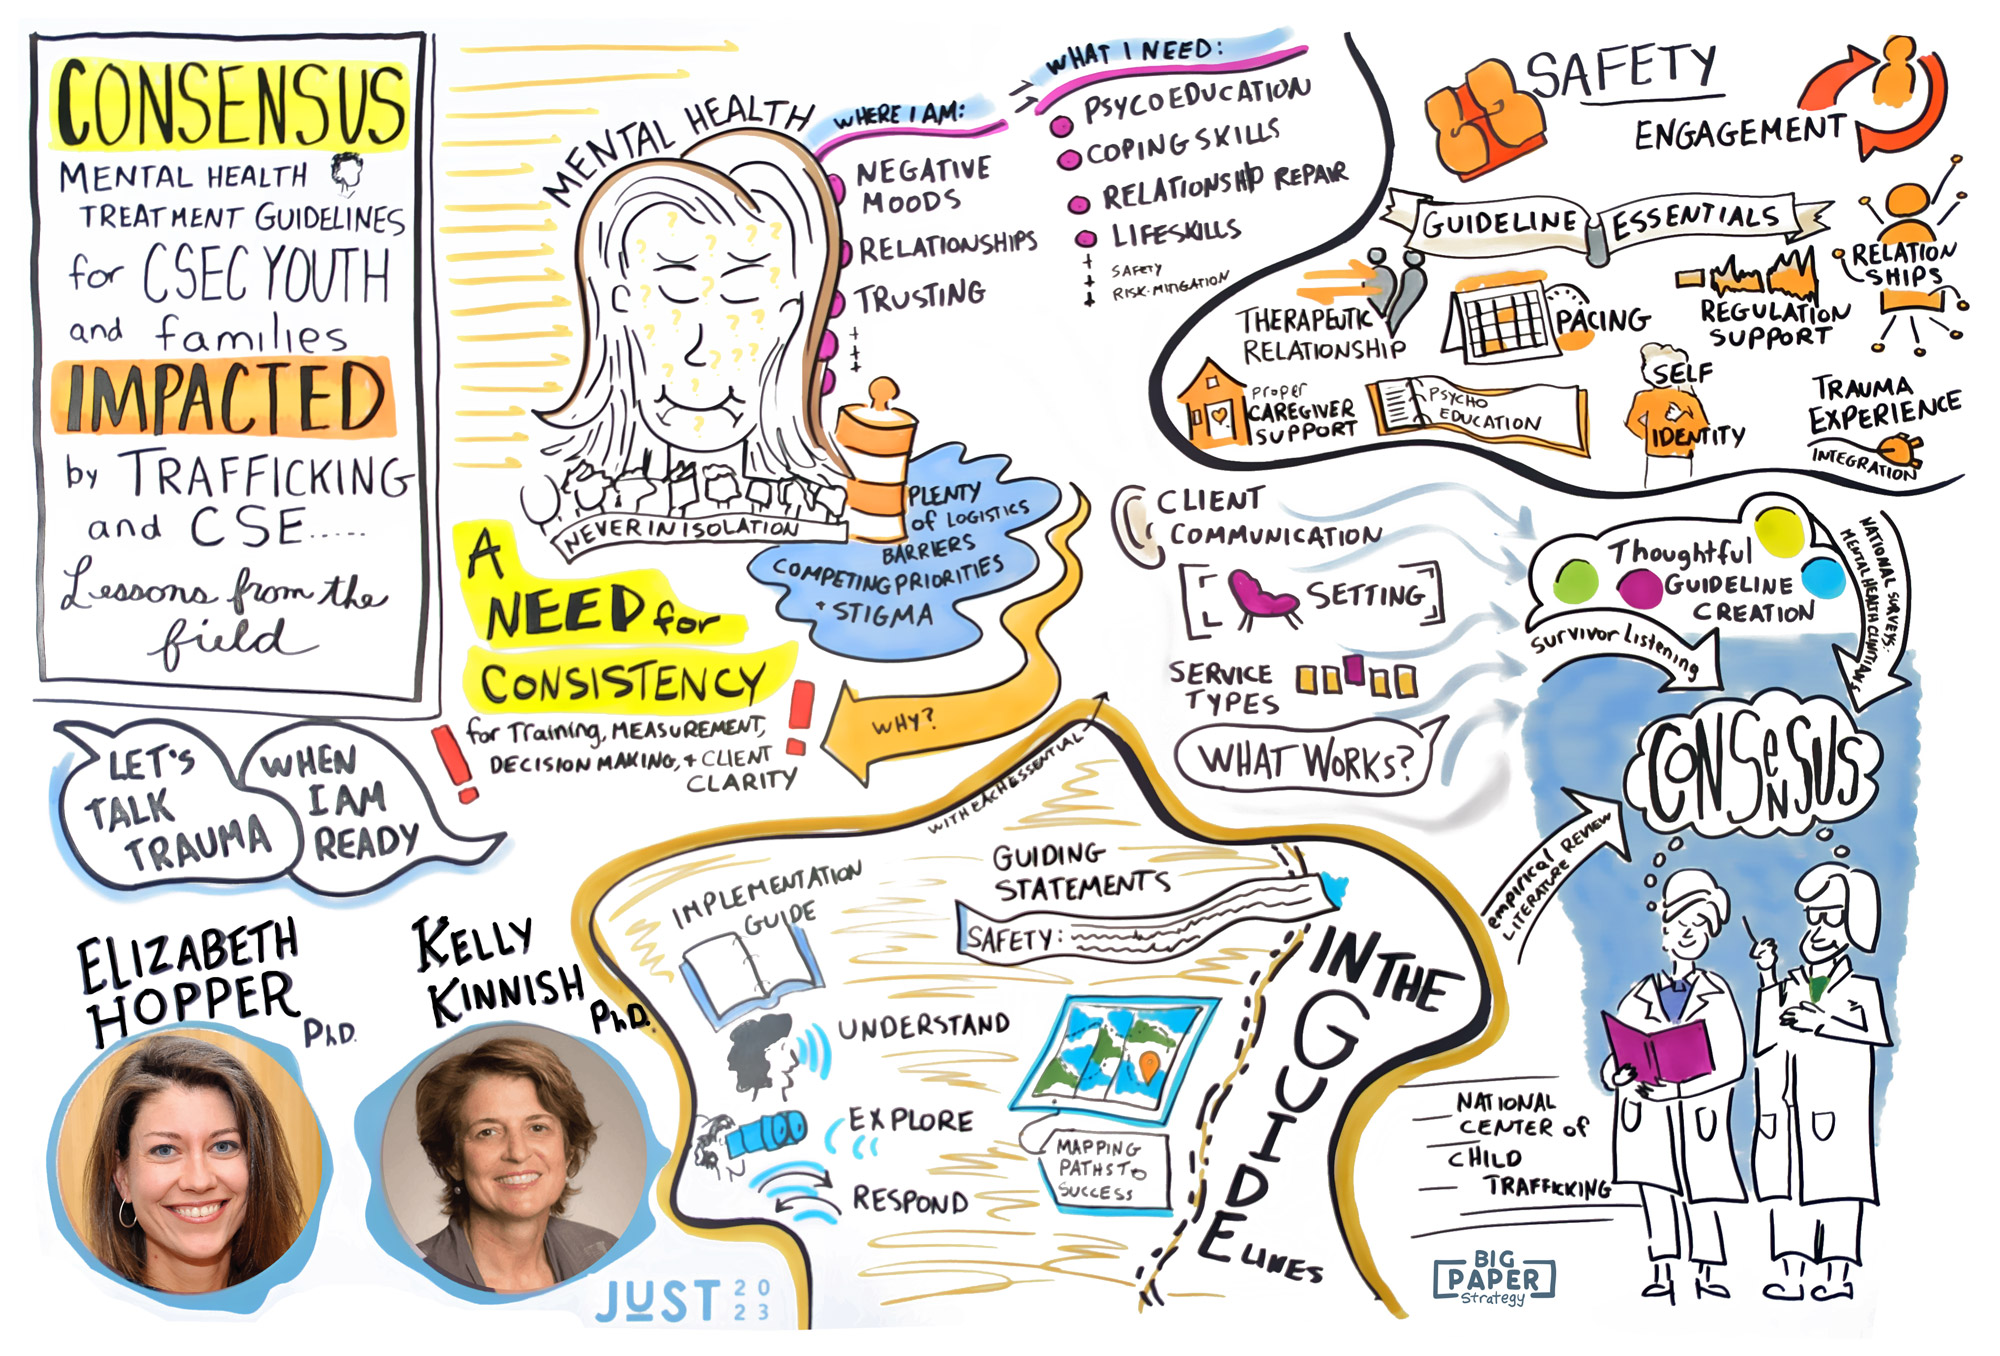 CONSENSUS
MENTAL HEALTH
TREATMENT GUIDELINES
for CSEC YOUTH
and families
IMPACTED
by TRAFFICKING
and CSE.....
Lessons from the
field
LET'S
TALK
TRAUMA
WHEN
I AM
READY
ELIZABETH
HOPPER
PhD.
KELLY
KINNISH
PhD.
JUST 2023
MENTAL HEALTH
WHERE I AM:
NEGATIVE
MOODS
RELATIONSHIPS
TRUSTING
WHAT I NEED:
PSYCOEDUCATION
COPING SKILLS
RELATIONSHIP REPAIR
LIFESKILLS
+ SAFETY
+ RISK-MITIGATION
NEVER IN ISOLATION
PLENTY
of LOGISTICS
BARRIERS
COMPETING PRIORITIES
+ STIGMA
A
NEED for
CONSISTENCY
for Training, MEASUREMENT,
DECISION MAKING, + CLIENT
CLARITY
WHY?
SAFETY
ENGAGEMENT
GUIDELINE ESSENTIALS
RELATION
SHIPS
THERAPEUTIC
RELATIONSHIP
PACING
REGULATION
SUPPORT
PROPER
CAREGIVER
SUPPORT
PSYCHO
EDUCATION
SELF
IDENTITY
TRAUMA
EXPERIENCE
INTEGRATION
CLIENT
COMMUNICATION
[SETTING]
SERVICE
TYPES
WHAT WORKS?
Thoughtful
GUIDELINE
CREATION
Survivor Listening
NATIONAL SURVEYS:
MENTAL HEALTH CLINITIANS
CONSENSUS
empirical
LITERATURE REVIEW
WITH EACH ESSENTIAL
IMPLEMENTATION
GUIDE
GUIDING
STATEMENTS
SAFETY:
UNDERSTAND
EXPLORE
RESPOND
MAPPING
PATHS TO
SUCCESS
IN THE
GUIDELINES
NATIONAL
CENTER of
CHILD
TRAFFICKING
BIG
PAPER
Strategy